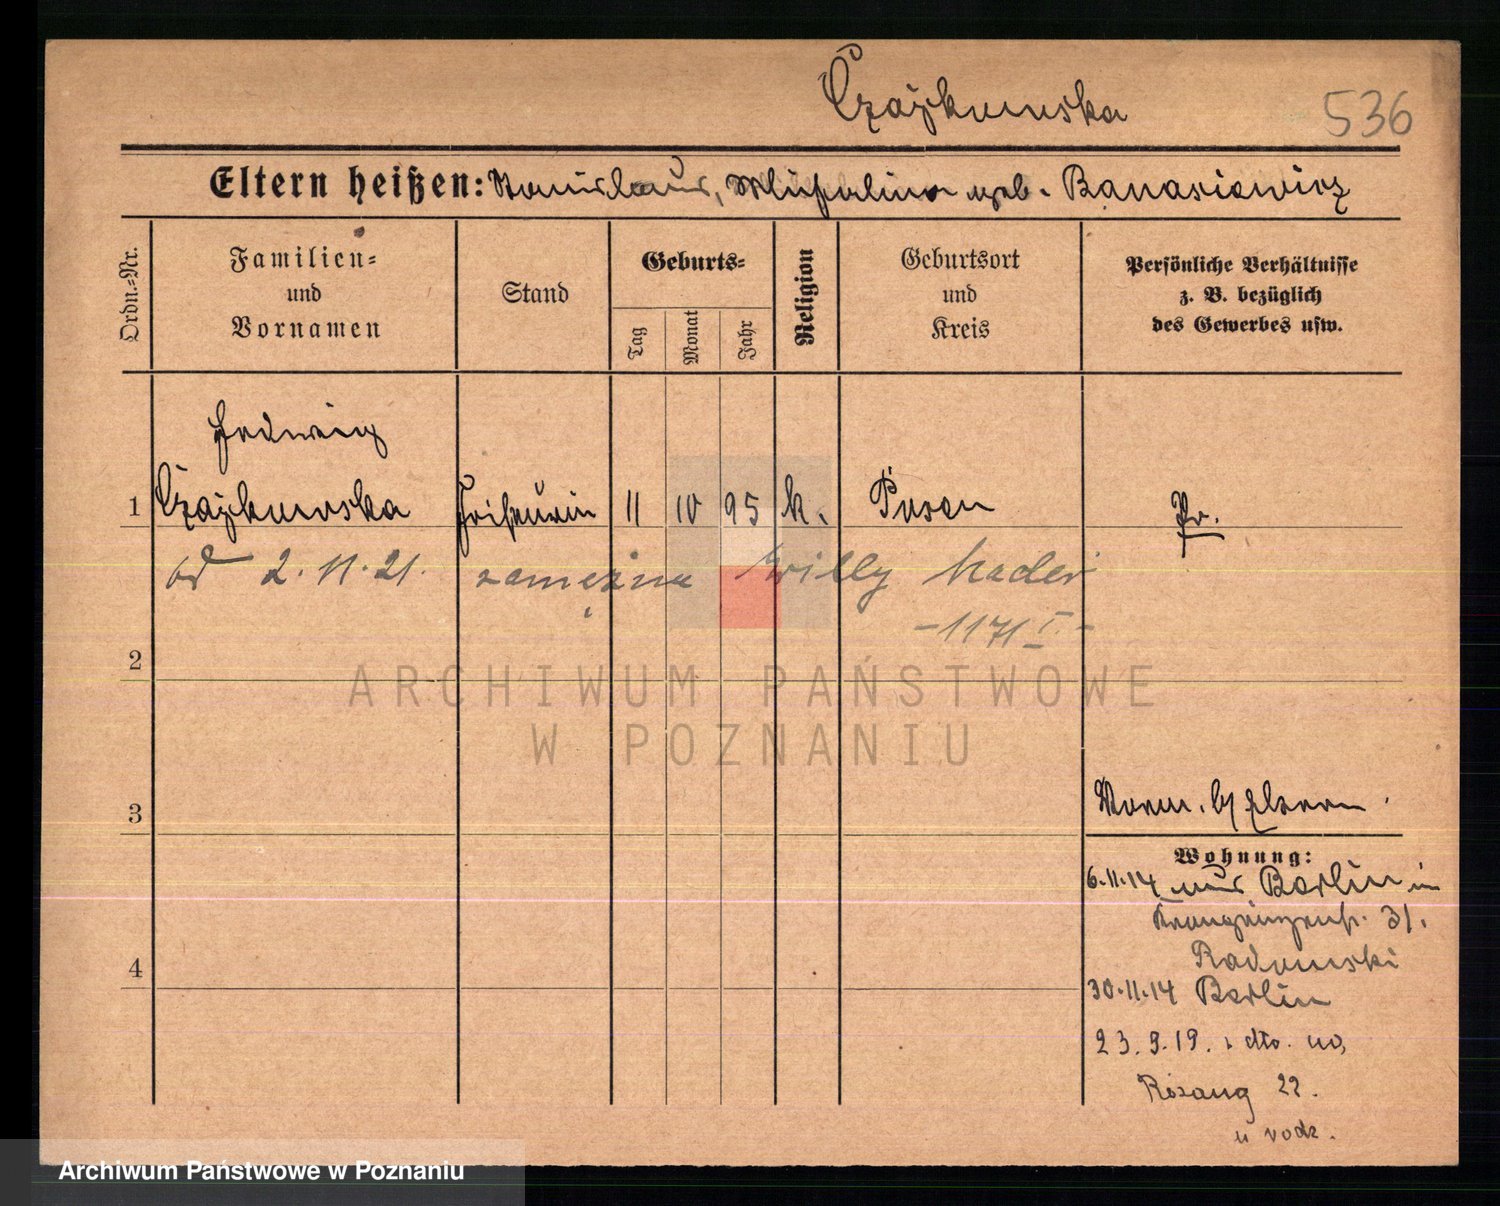 Czajkowska
536
Eltern heißen: Stanislaus, Michalina geb. Banasiewicz
Ordn.-Nr.
Familien-
und
Vornamen
Stand
Geburts-
Tag
Monat
Jahr
Religion
Geburtsort
und
Kreis
Persönliche Verhältnisse
z. B. bezüglich
des Gewerbes usw.
Hedwig
1 Czajkowska Friseurin 11 10 95 k. Posen Pr.
od 2.11.21. zamężna Willy Mader
- 1171 I. -
2
3
4
Vorm. b/ Eltern.
Wohnung:
6.11.14 aus Berlin in
31.
Radomski
30.11.14 Berlin
23.9.19. dto.
22.
u rodz.
ARCHIWUM PAŃSTWOWE
W POZNANIU
Archiwum Państwowe w Poznaniu